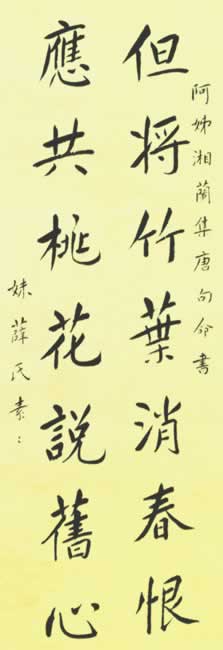 阿姊湘蘭集唐句命書
但将竹葉消春恨
應共桃花説舊心
妹薛氏素：